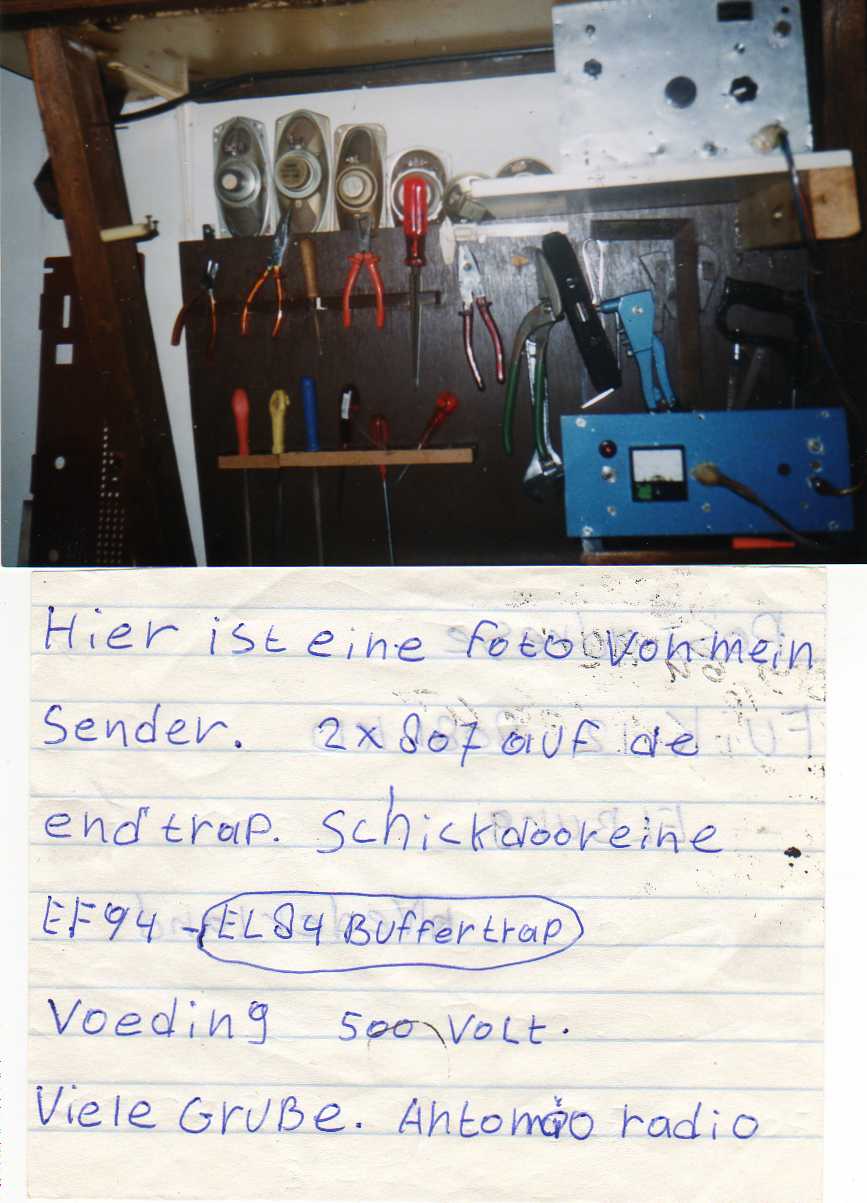 Hier ist eine foto von mein
Sender. 2x807 auf de
endtrap. Schickdooreine
EF94 - EL84 Buffertrap
Voeding 500 Volt.
Viele Gruße. radio